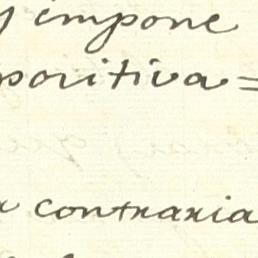 y impone
positiva=
a contraria